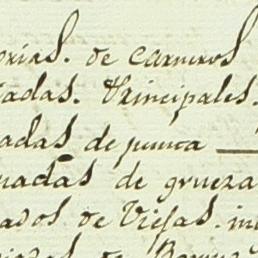 orias. de carneros
iadas. Principales.
adas de punta
nadas de grueza
ados de Viejas. in